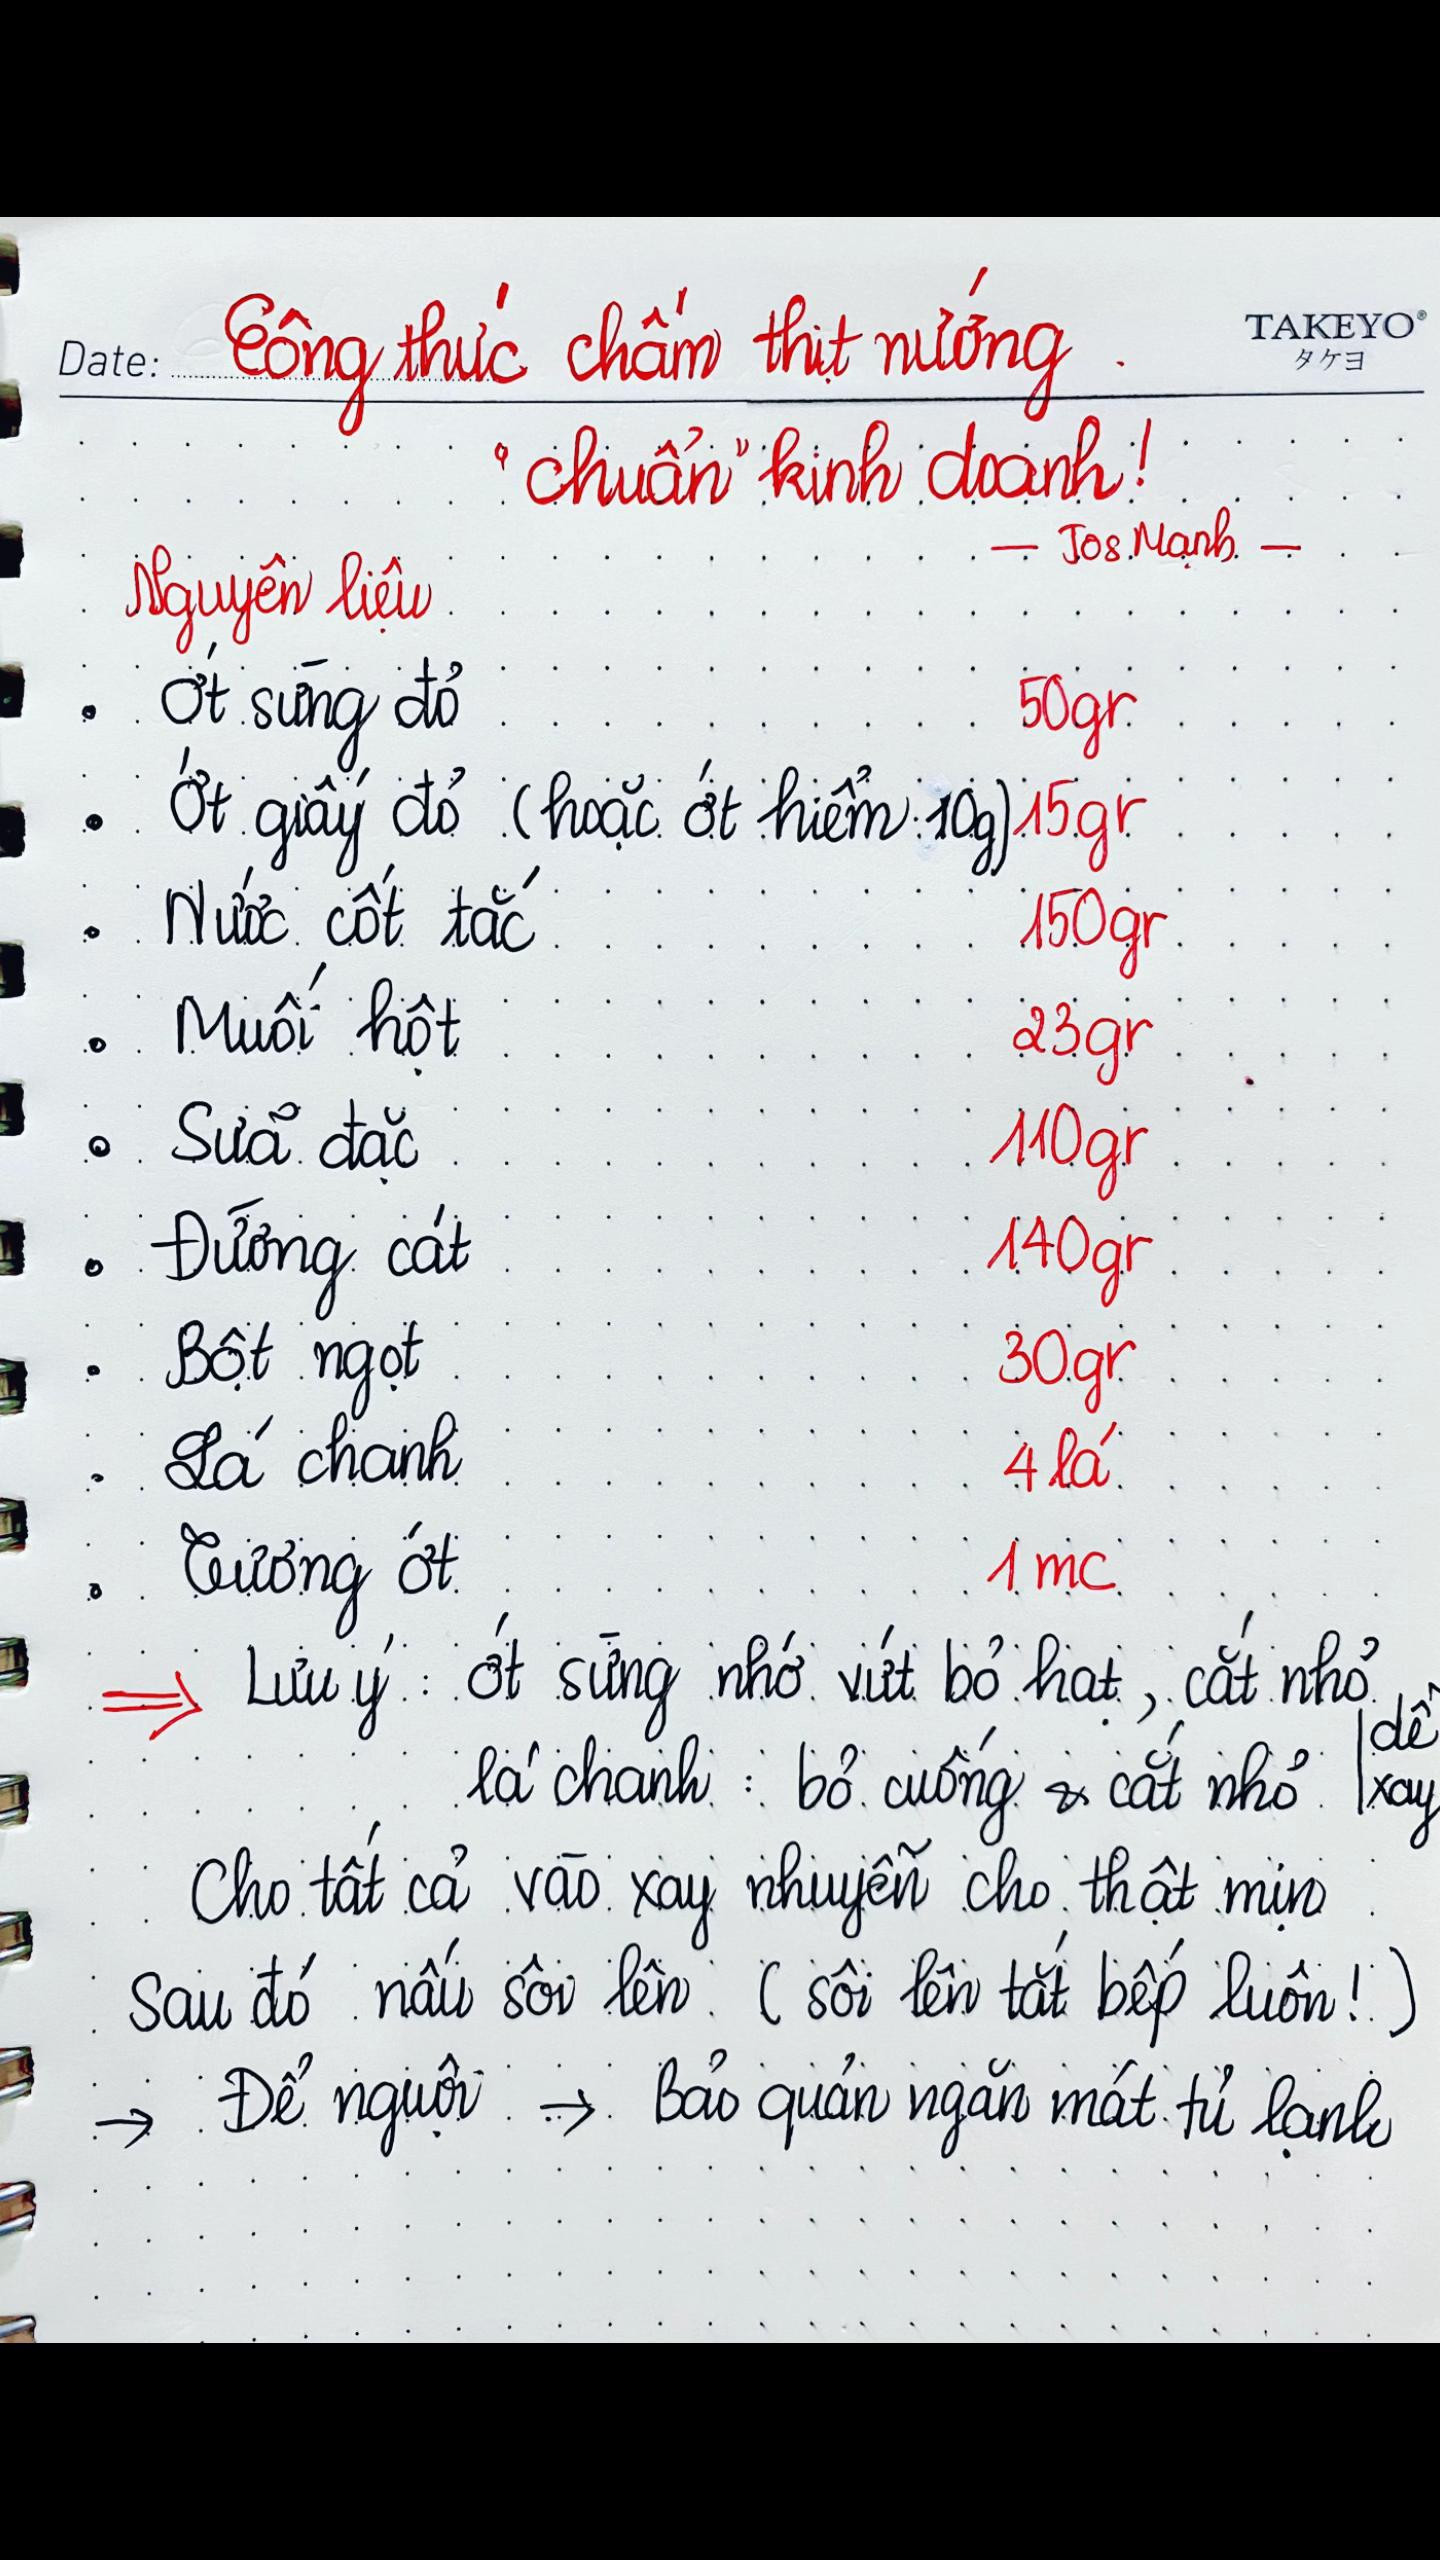 Date: Công thức chấm thịt nướng. TAKEYO®
タケヨ
"chuẩn" kinh doanh!
— Jos Mạnh —
Nguyên liệu
• Ớt sừng đỏ 50gr
• Ớt giấy đỏ (hoặc ớt hiểm 10g) 15gr
• Nước cốt tắc 150gr
• Muối hột 23gr
• Sữa đặc 110gr
• Đường cát 140gr
• Bột ngọt 30gr
• Lá chanh 4 lá
• Tương ớt 1 mc
⇒ Lưu ý : ớt sừng nhớ vứt bỏ hạt, cắt nhỏ
lá chanh : bỏ cuống & cắt nhỏ | dễ xay
Cho tất cả vào xay nhuyễn cho thật mịn
Sau đó nấu sôi lên (sôi lên tắt bếp luôn!)
→ Để nguội → Bảo quản ngăn mát tủ lạnh